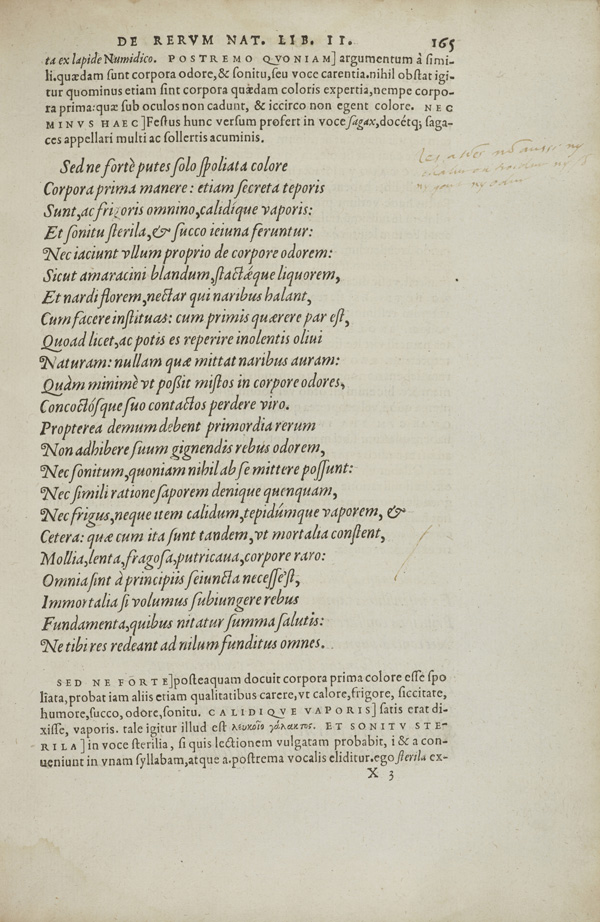 DE RERVM NAT. LIB. II. 165
ta ex lapide Numidico. POSTREMO QVONIAM] argumentum à simi-
li. quædam sunt corpora odore, & sonitu, seu voce carentia. nihil obstat igi-
tur quominus etiam sint corpora quædam coloris expertia, nempe corpo-
ra prima: quæ sub oculos non cadunt, & iccirco non egent colore. NEC
MINVS HAEC] Festus hunc versum profert in voce sagax, docétq; saga-
ces appellari multi ac sollertis acuminis.
Sed ne fortè putes solo spoliata colore
Corpora prima manere: etiam secreta teporis
Sunt, ac frigoris omnino, calidique vaporis:
Et sonitu sterila, & succo ieiuna feruntur:
Nec iaciunt vllum proprio de corpore odorem:
Sicut amaracini blandum, stactǽque liquorem,
Et nardi florem, nectar qui naribus halant,
Cum facere instituas: cum primis quærere par est,
Quoad licet, ac potis es reperire inolentis oliui
Naturam: nullam quæ mittat naribus auram:
Quàm minimè vt possit mistos in corpore odores,
Concoctósque suo contactos perdere viro.
Propterea demum debent primordia rerum
Non adhibere suum gignendis rebus odorem,
Nec sonitum, quoniam nihil ab se mittere possunt:
Nec simili ratione saporem denique quenquam,
Nec frigus, neque item calidum, tepidúmque vaporem, &
Cetera: quæ cum ita sunt tandem, vt mortalia constent,
Mollia, lenta, fragosa, putri caua, corpore raro:
Omnia sint à principiis seiuncta necesse'st,
Immortalia si volumus subiungere rebus
Fundamenta, quibus nitatur summa salutis:
Ne tibi res redeant ad nilum funditus omnes.
SED NE FORTE] posteaquam docuit corpora prima colore esse spo
liata, probat iam aliis etiam qualitatibus carere, vt calore, frigore, siccitate,
humore, succo, odore, sonitu. CALIDIQVE VAPORIS] satis erat di-
xisse, vaporis. tale igitur illud est λευκοῖο γάλακτος. ET SONITV STE-
RILA] in voce sterilia, si quis lectionem vulgatam probabit, i & a con-
ueniunt in vnam syllabam, atque a. postrema vocalis eliditur. ego sterila ex-
X 3